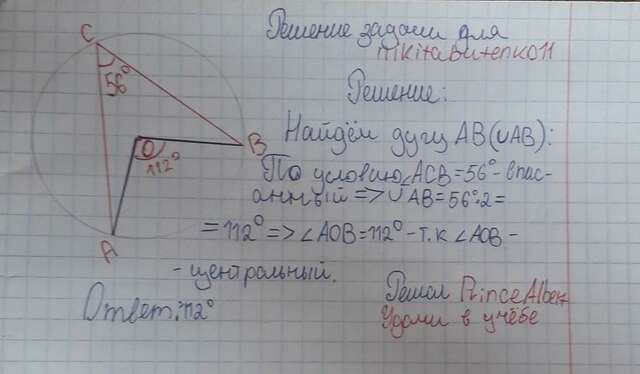 Решение задачи для
nikitabutenko11
Решение:
C
56°
Найдём дугу AB(∪AB):
B
O
112°
По условию ∠ACB=56°-впис-
анный => ∪AB=56°·2=
=112° => ∠AOB=112°-т.к ∠AOB-
A
-центральный.
Ответ: 112°
Решал PrinceAlbert
Удачи в учёбе